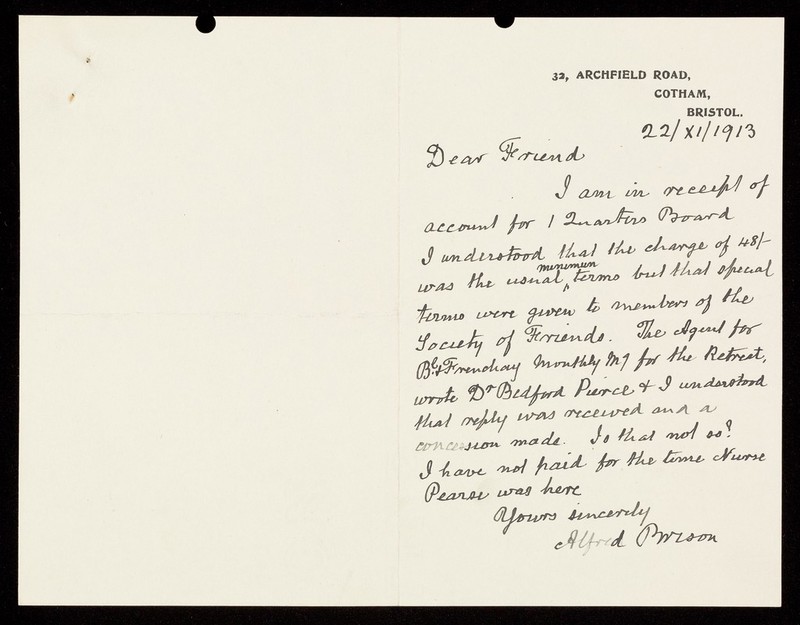 32, ARCHFIELD ROAD,
COTHAM,
BRISTOL.
22/XI/1913
Dear Friend
I am in receipt of
account for 1 Quarters Board
I understood that the charge of 48/-
minimum
was the usual ^ terms but that special
terms were given to members of the
Society of Friends. The Agent for
Bl & Frenchay Monthly Mg for the Retreat,
wrote Dr Bedford Pierce & I understood
that reply was received and a
concession made. Is that not so?
I have not paid for the time Nurse
Pearse was here
Yours sincerely
Alfred